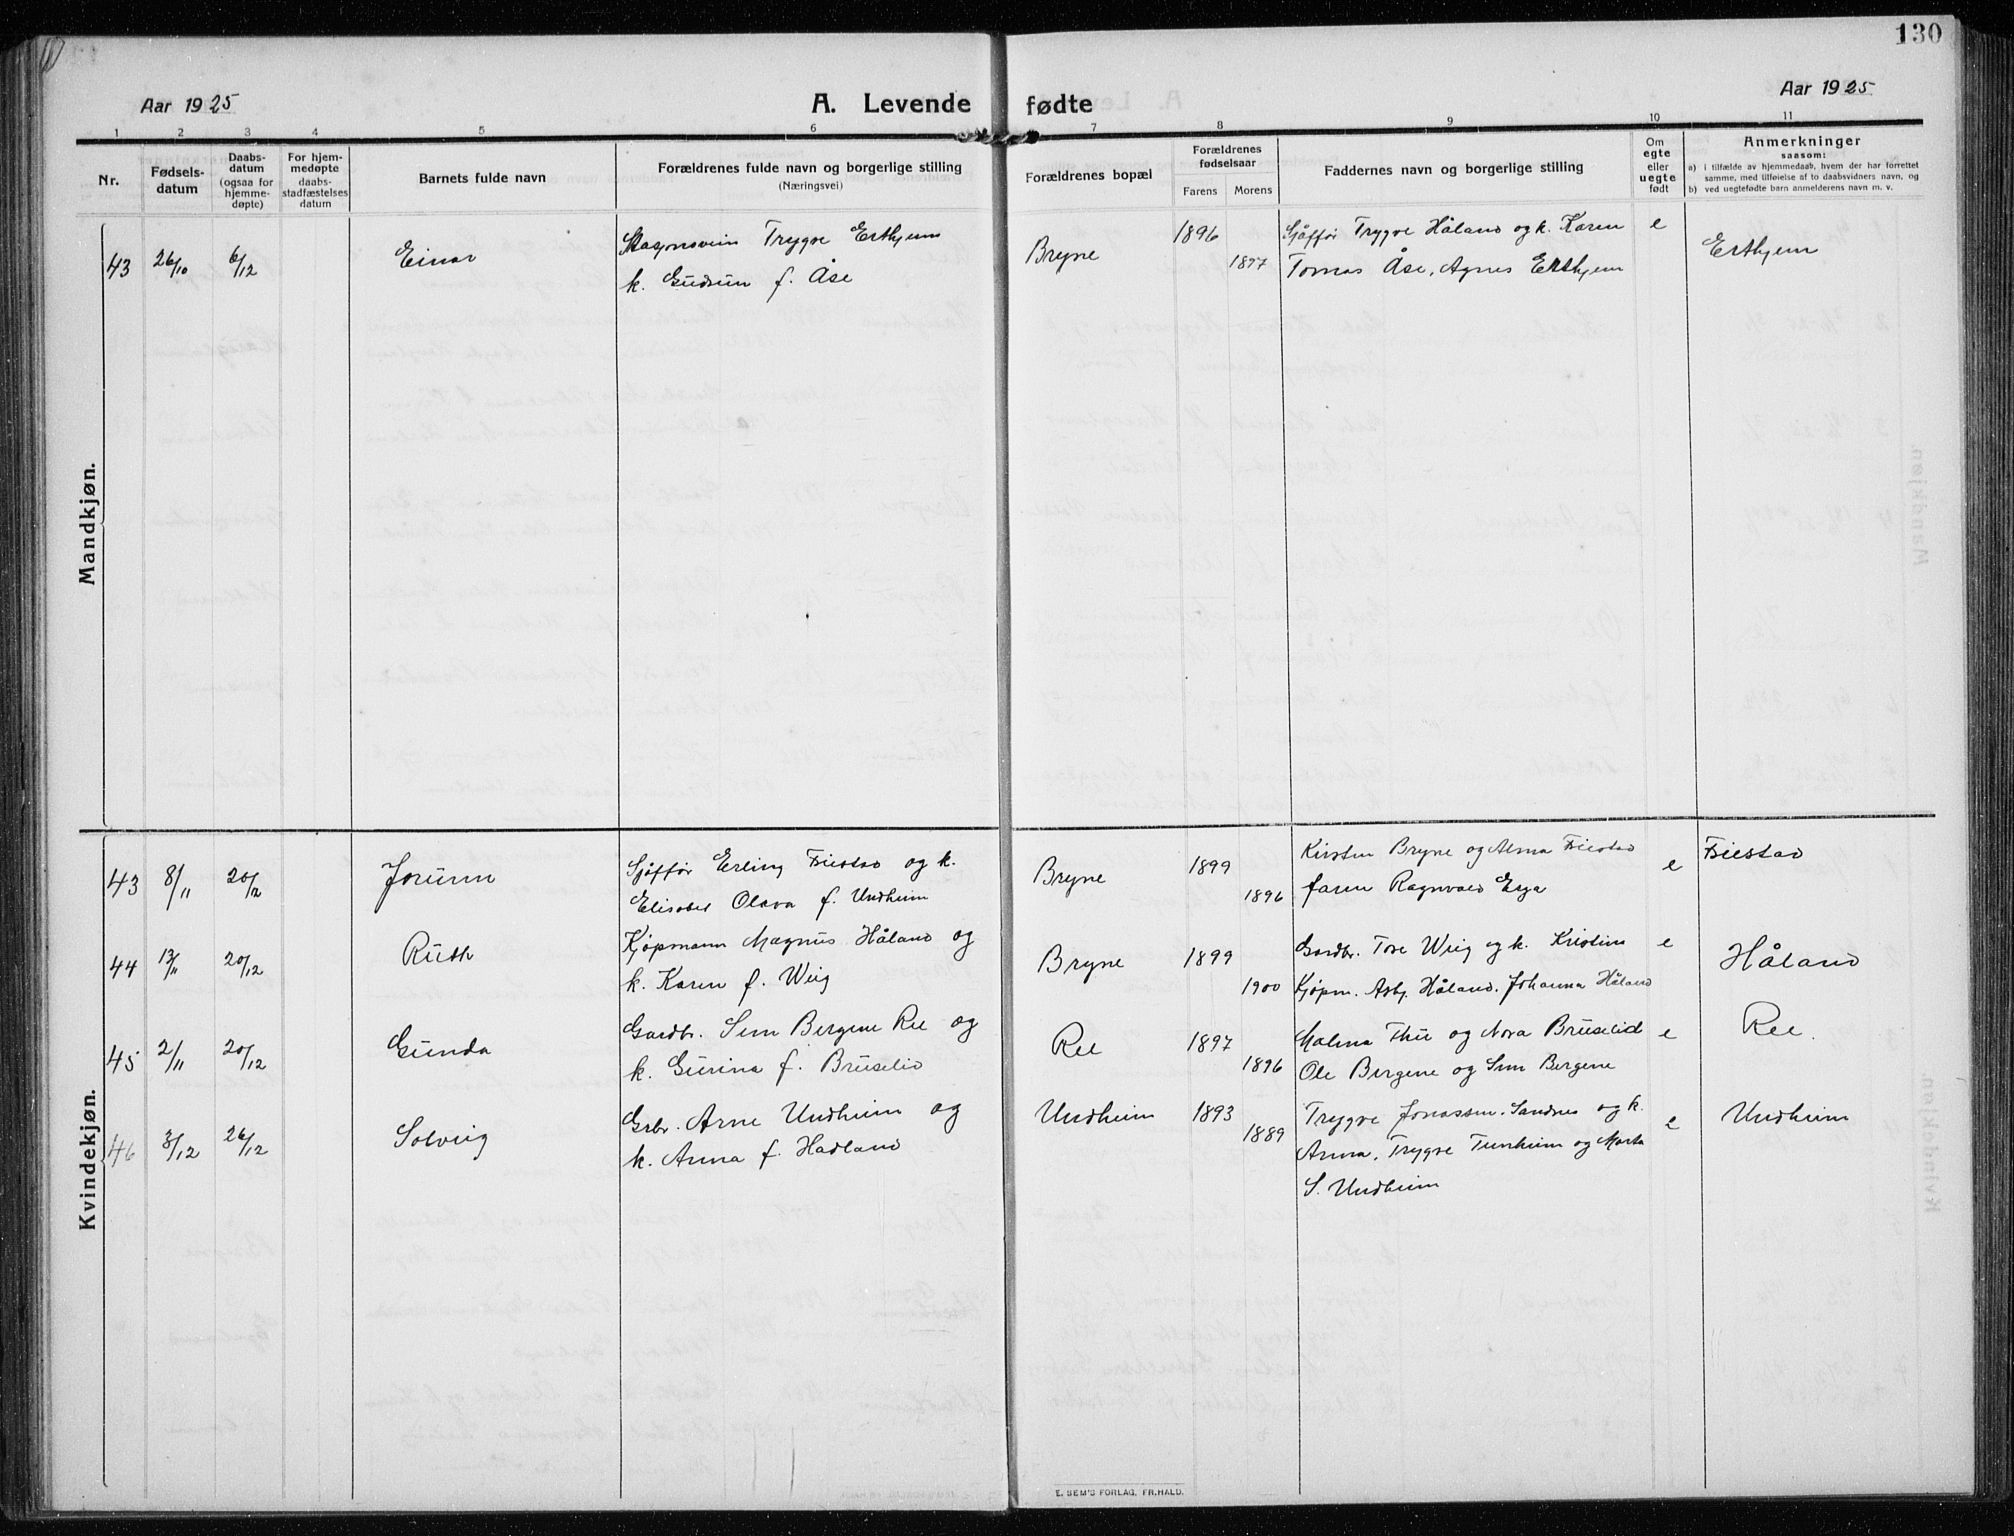 130
Aar 1925
A. Levende fødte
Aar 1925
1 2 3 4 5 6 7 8 9 10 11
Nr.
Fødsels-
datum
Daabs-
datum
(ogsaa for
hjemme-
døpte)
For hjem-
medøpte
daabs-
stadfæstelses
datum
Barnets fulde navn
Forældrenes fulde navn og borgerlige stilling
(Næringsvei)
Forældrenes bopæl
Forældrenes
fødselsaar
Farens Morens
Faddernes navn og borgerlige stilling
Om
egte
eller
uegte
født
Anmerkninger
saasom:
a) i tilfælde av hjemmedaab, hvem der har forrettet
samme, med tilføielse af to daabsvidners navn, og
b) ved uegtefødte barn anmelderens navn m. v.
Mandkjøn.
43 26/10 6/12 Einar
Trygve Erthjem
k. Gudrun f. Åse
Bryne 1896 1897
Sjåffør Trygve Håland og k. Karen
Tomas Åse, Agnes Erthjem
e Erthjem
Kvindekjøn.
43 8/11 20/12 Jorunn
Sjåffør Erling Friestad og k.
Elisabet Olava f. Undheim
Bryne 1899 1896
Kirsten Bryne og Alma Friestad
farm Ragnvald Erga
e Friestad
44 13/11 20/12 Ruth
Kjøpmann Magnus Håland og
k. Karen f. Wiig
Bryne 1899 1900
Gardbr. Tore Wiig og k. Kristine
Kjøpm. Asbj. Håland, Johanna Håland
e Håland
45 2/11 20/12 Gunda
Gardbr. Sem Bergene Ree og
k. Gurina f. Bruselid
Ree 1897 1896
Malena Thu og Nora Bruselid
Ole Bergene og Sem Bergene
e Ree.
46 3/12 26/12 Solveig
Grbr. Arne Undheim og
k. Anna f. Hadland
Undheim 1893 1889
Trygve Jonassen, Sandnes og k.
Anna, Trygve Tunheim og Marta
S. Undheim
e Undheim
E. SEM'S FORLAG, FR.HALD.